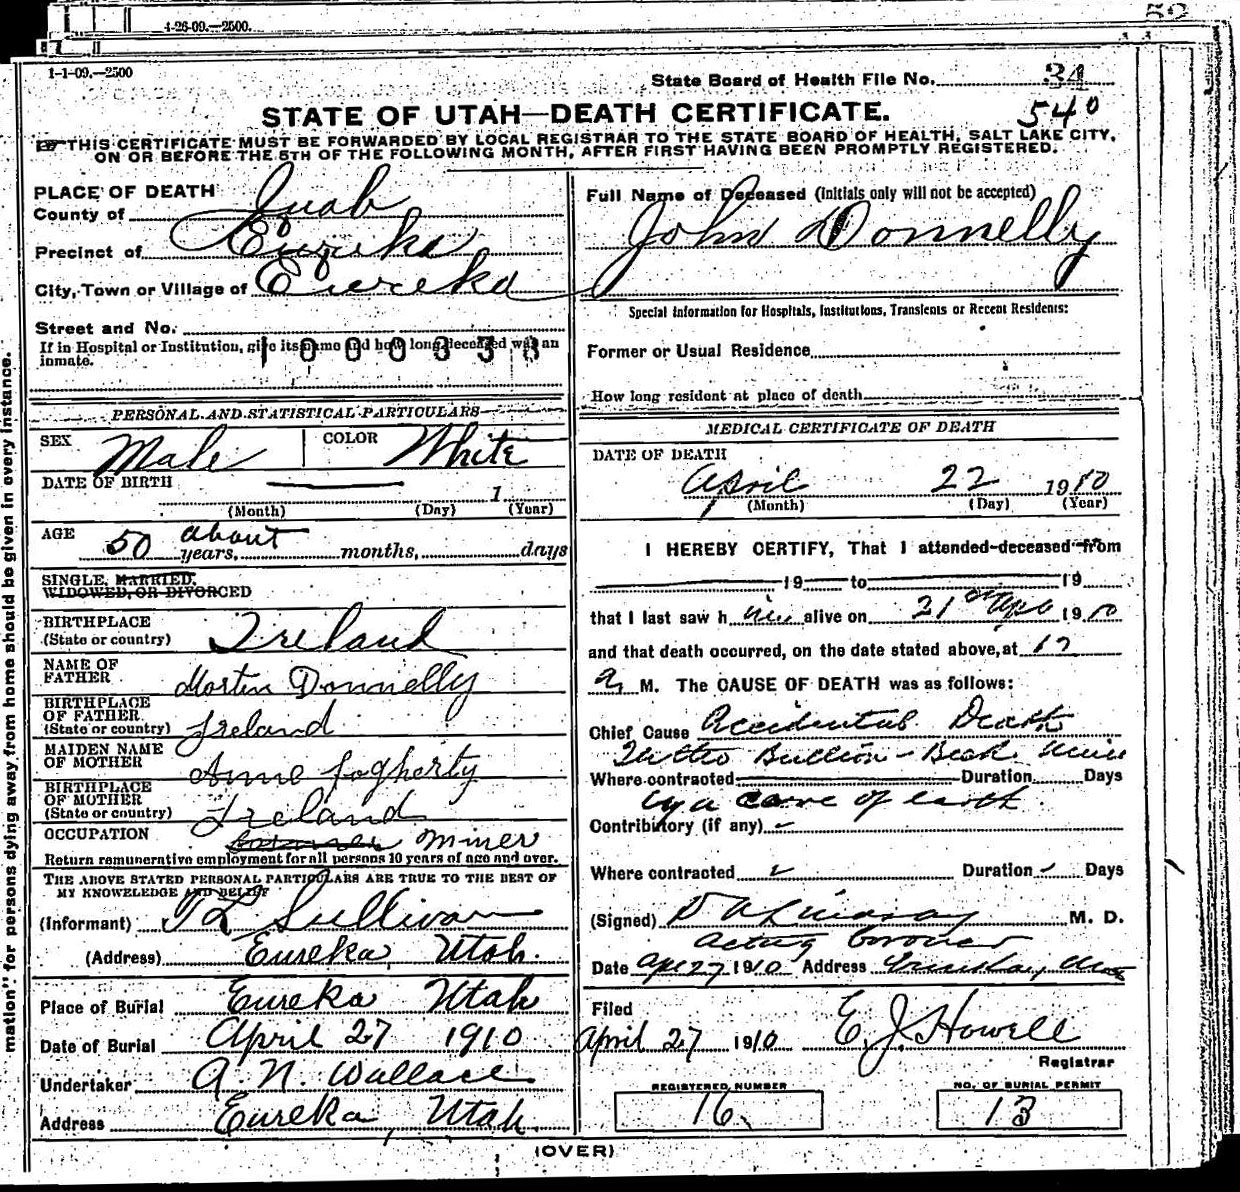 4-26-09.—2500.
52
1-1-09.—2500
State Board of Health File No. 34
STATE OF UTAH—DEATH CERTIFICATE. 540
THIS CERTIFICATE MUST BE FORWARDED BY LOCAL REGISTRAR TO THE STATE BOARD OF HEALTH, SALT LAKE CITY,
ON OR BEFORE THE 5TH OF THE FOLLOWING MONTH, AFTER FIRST HAVING BEEN PROMPTLY REGISTERED.
PLACE OF DEATH
County of Juab
Precinct of Eureka
City, Town or Village of Eureka
Street and No.
If in Hospital or Institution, give its name and how long deceased was an
inmate.
PERSONAL AND STATISTICAL PARTICULARS
SEX Male COLOR White
DATE OF BIRTH 1
(Month) (Day) (Year)
AGE 50 about years, months, days
SINGLE, MARRIED,
WIDOWED, OR DIVORCED
BIRTHPLACE
(State or country) Ireland
NAME OF
FATHER Morten Donnelly
BIRTHPLACE
OF FATHER
(State or country) Ireland
MAIDEN NAME
OF MOTHER Anne fogherty
BIRTHPLACE
OF MOTHER
(State or country) Ireland
OCCUPATION Miner
Return remunerative employment for all persons 10 years of age and over.
THE ABOVE STATED PERSONAL PARTICULARS ARE TRUE TO THE BEST OF
MY KNOWLEDGE AND BELIEF
(Informant) T L Sullivan
(Address) Eureka, Utah.
Place of Burial Eureka Utah
Date of Burial April 27 1910
Undertaker A. N. Wallace
Address Eureka, Utah.
Full Name of Deceased (initials only will not be accepted)
John Donnelly
Special Information for Hospitals, Institutions, Transients or Recent Residents:
Former or Usual Residence
How long resident at place of death
MEDICAL CERTIFICATE OF DEATH
DATE OF DEATH
April 22 1910
(Month) (Day) (Year)
I HEREBY CERTIFY, That I attended deceased from
19 to 19
that I last saw h im alive on 21 of Apr 1910
and that death occurred, on the date stated above, at 12
a M. The CAUSE OF DEATH was as follows:
Chief Cause Accidental Death
Bullion - Beck Mine
Where contracted Duration Days
by a cave of earth
Contributory (if any)
Where contracted Duration Days
(Signed) D A Lindsay M. D.
acting Coroner
Date Apr 27 1910 Address Eureka, Utah
Filed
April 27 1910 E. J. Howell
Registrar
REGISTERED NUMBER
16
NO. OF BURIAL PERMIT
13
(OVER)
mation" for persons dying away from home should be given in every instance.